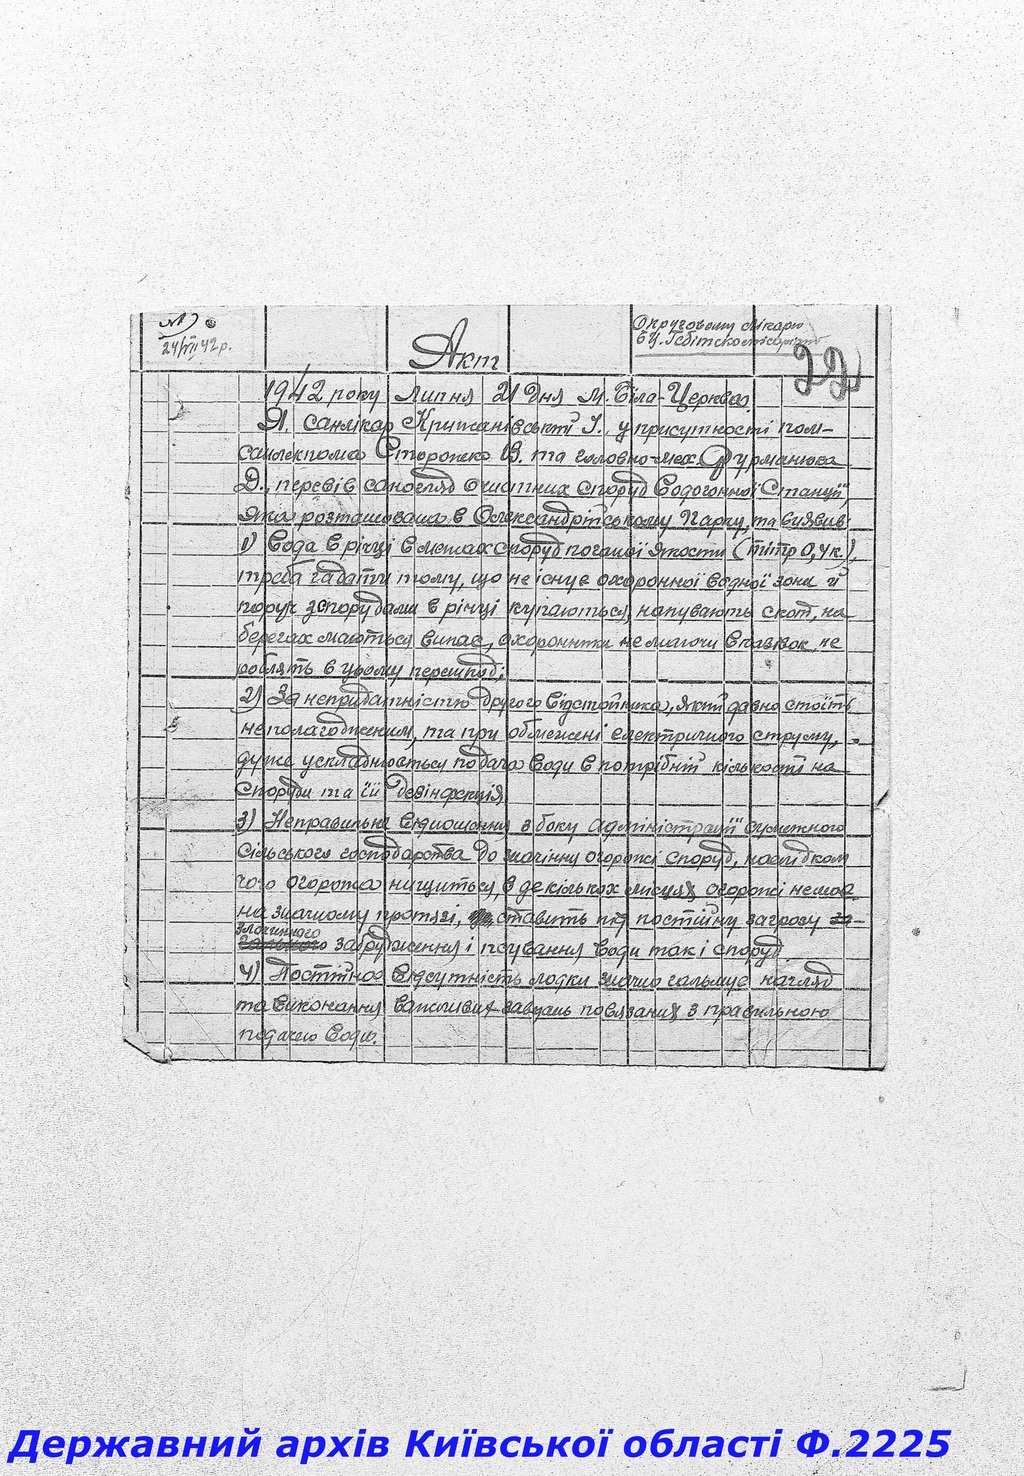 24/VII 42 р.
Округовому лікарю
БЦ. Гебітскомісаріату
22
Акт
1942 року Липня 21 Дня м. Біла-Церква.
Я, санлікар Крижанівський І., у присутності пом-
санлікаря Стороженко В. та головно-мех. Фурманюка
Д., перевів саногляд очистних споруд Водогонної Станції
яка розташована в Олександрійському Парку, та виявив:
1) Вода в річці в межах споруд поганої якости (тітр 0,4 к.),
треба гадати тому, що не існує охоронної водної зони й
поруч з спорудами в річці купаються, напувають скот, на
берегах мається випас, охоронники не маючи вказівок, не
роблять в цьому перешкод;
2) За непридатністю другого відстойника, який давно стоїть
неполагодженим, та при обмежені електричного струму,
дуже ускладнюється подача води в потрібній кількості на
споруди та її дезінфекція
3) Неправильне відношення з боку адміністрації сумежного
сільського господарства до значінну огорожі споруд, наслідком
чого огорожа нищиться, в декількох місцях огорожі немає
на значному протязі, ставить під постійну загрозу
злочинного
забрудження і псування води так і споруд.
4) Постійна відсутність лодки значно гальмує нагляд
та виконання важливих завдань повязаних з правильною
подачею води.
Державний архів Київської області Ф.2225